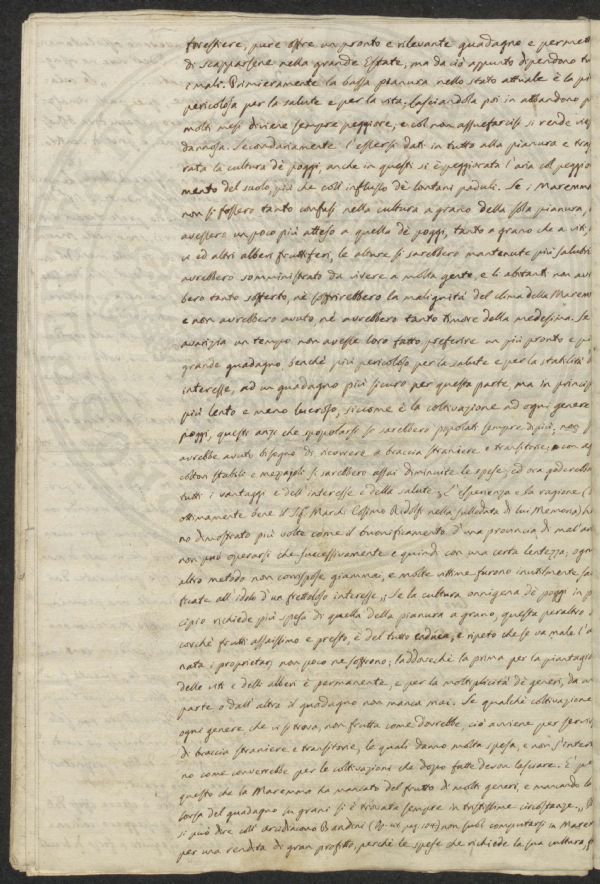 forestiere, pure offre un pronto e rilevante guadagno e permett
di scapparsene nella grande Estate; ma da ciò appunto dipendono tu
i mali. Primieramente la bassa pianura nello stato attuale è la pi
pericolosa per la salute e per la vita; lasciandola poi in abbandono p
molti mesi diviene sempre peggiore, e col non assuefarcisi si rende vie
dannosa. Secondariamente l'essersi dati in tutto alla pianura e tras
rata la cultura de' poggi, anche in questi si è peggiorata l'aria col peggio
mento del suolo, più che coll'influsso de' lontani paduli. Se i Maremm
non si fossero tanto confusi nella cultura a grano della sola pianura,
avessero un poco più atteso a quella de' poggi, tanto a grano che a viti,
vi ed altri alberi fruttiferi, le alture si sarebbero mantenute più salubri
avrebbero somministrato da vivere a molta gente, e li abitanti non avr
bero tanto sofferto, nè soffrirebbero la malignità del clima della Marem
e non avrebbero avuto, nè avrebbero tanto timore della medesima. Se
avarizia un tempo non avesse loro fatto preferire un più pronto e pi
grande guadagno benchè più pericoloso per la salute e per la stabilità d
interesse, ad un guadagno più sicuro per questa parte, ma in princip
più lento e meno lucroso, siccome è la coltivazione ad ogni genere
poggi, questi anzi che spopolarsi si sarebbero popolati sempre di più, non
avrebbe avuto bisogno di ricorrere a braccia straniere e transitorie; con ag
coltori stabili e mezzajoli si sarebbero assai diminuite le spese, ed ora goderebbe
tutti i vantaggi e dell'interesse e della salute „ L'esperienza e la ragione (
ottimamente bene il Sig. March. Cosimo Ridolfi nella sullodata di lui Memoria) h
no dimostrato più volte come il buonificamento d'una provincia di mal'ar
non può operarsi che successivamente e quindi con una certa lentezza; ogn
altro metodo non corrispose giammai, e molte vittime furono inutilmente sac
ficate all'idolo d'un frettoloso interesse „ Se la cultura onnigena de' poggi in p
cipio richiede più spesa di quella della pianura a grano, questa peraltro
corchè frutti assaissimo e presto, è del tutto caduca, e ripeto che se va male l'a
nata i proprietarj non poco ne soffrono; laddovechè la prima per la piantagio
delle viti e delli alberi è permanente, e per la moltiplicità de' generi, da un
parte o dall'altra il guadagno non manca mai. Se qualche coltivazione
ogni genere, che vi si trova, non frutta come dovrebbe, ciò avviene per servir
di braccia straniere e transitorie, le quali danno molta spesa, e non s'intere
no come converrebbe per le coltivazioni che dopo fatte devon lasciare. È pe
questo che la Maremma ha mancato del frutto di molti generi, e mancando la
sorsa del guadagno in grani si è trovata sempre in tristissime circostanze. „
si può dire coll'Arcidiacono Bandini (Op. cit. pag. 104) non suol computarsi in Marem
per una rendita di gran profitto, perchè le spese che richiede la sua cultura,